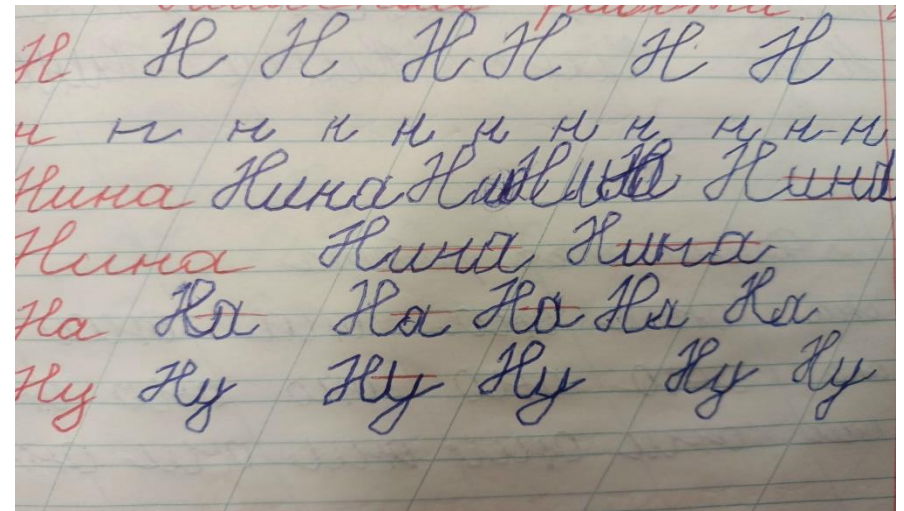 Н Н Н Н Н Н Н
н н н н н н н н н н н
Нина Нина Нина Нина
Нина Нина Нина
На На На На На На
Ну Ну Ну Ну Ну Ну